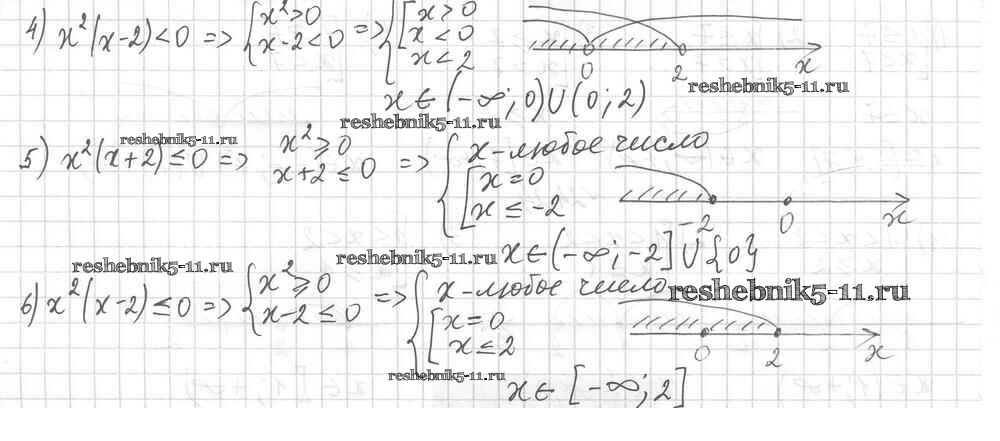 4) x²(x-2)<0 => { x²>0 => { [ x>0
x-2<0 x<0
x<2
0 2 x
reshebnik5-11.ru
x∈(-∞; 0)∪(0; 2)
reshebnik5-11.ru
reshebnik5-11.ru
5) x²(x+2)≤0 => x²≥0 => { x-любое число
x+2≤0 [ x=0
x≤-2
-2 0 x
x∈(-∞; -2]∪{0}
reshebnik5-11.ru
reshebnik5-11.ru
6) x²(x-2)≤0 => { x²≥0 => { x-любое число
x-2≤0 [ x=0
x≤2
reshebnik5-11.ru
0 2 x
reshebnik5-11.ru
x∈[-∞; 2]